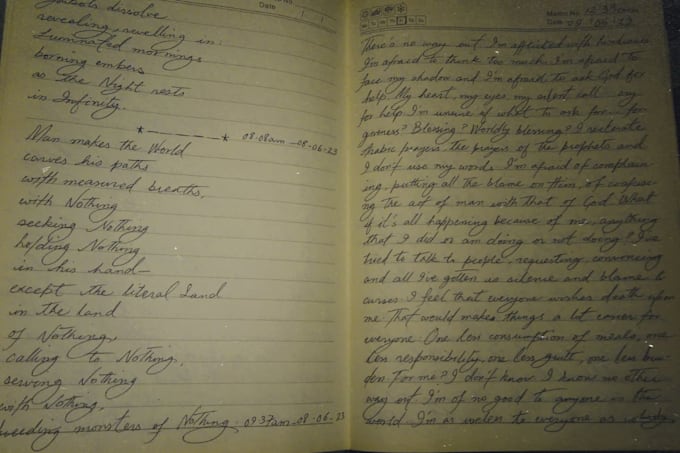 dissolve
revealing, revelling in:
mornings
embers
as the Night rests
in Infinity.
08:08am -08-06-23
Man makes the World
carves his paths
with measured breaths,
with Nothing
seeking Nothing
holding Nothing
in his hand—
except the literal Land
in the land
of Nothing,
calling to Nothing,
serving Nothing
with Nothing,
monsters of Nothing. 09:37am -08-06-23
Date
Memo No.
Date
There's no way out. I'm afflicted with
I'm afraid to think too much. I'm afraid to
face my shadow and I'm afraid to ask God for
help. My heart, my eyes, my silent call cry
for help. I'm unsure of what to ask for— for-
giveness? Blessing? Worldly blessing?
prayers, the prayers of the prophets and
I don't use my words. I'm afraid of complain-
ing, putting all the blame on Him, of confusi-
ng the act of man with that of God. What
if it's all happening because of me, anything
that I did or am doing or not doing? I've
tried to talk to people, requesting, convincing
and all I've gotten is silence and blame &
curses. I feel that everyone wishes death upon
me. That would makes things a lot easier for
everyone. One less consumption of meals, one
less responsibility, one less guilt, one less bur-
den. For me? I don't know. I know no other
way out. I'm of no good to anyone in the
world. I'm as to everyone as